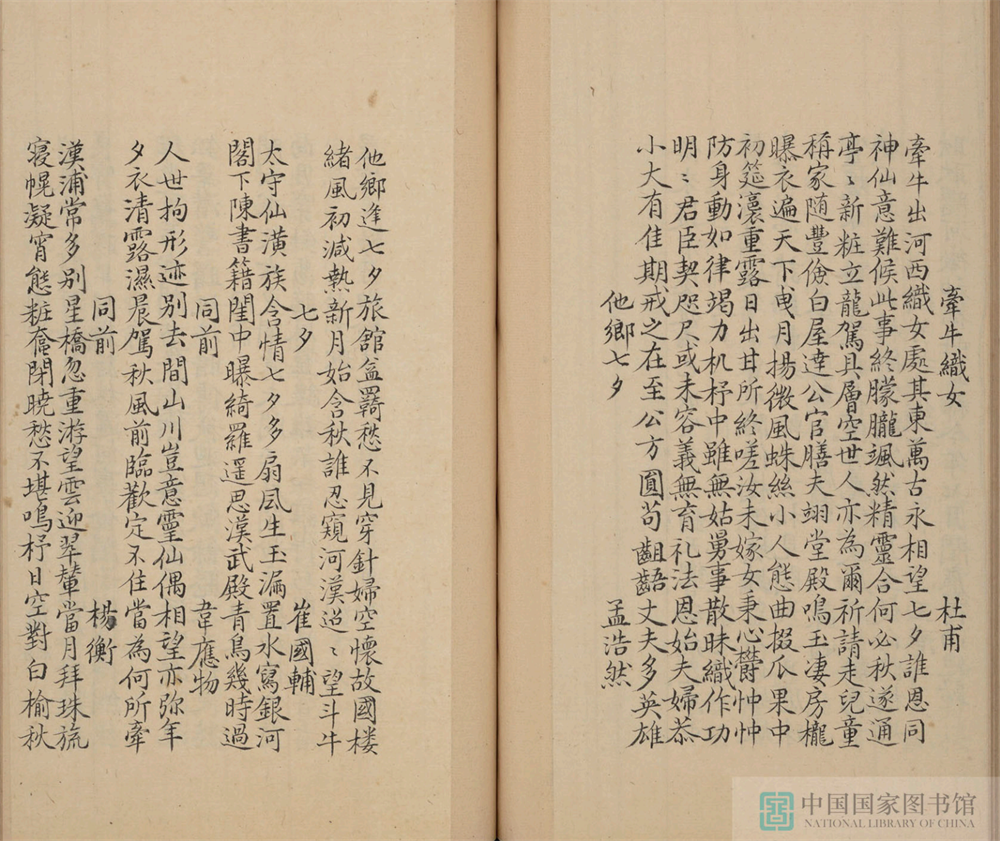 牽牛織女 杜甫
牽牛出河西織女處其東萬古永相望七夕誰恩同
神仙意難候此事終朦朧颯然精靈合何必秋遂通
亭〻新粧立龍駕具層空世人亦為爾祈請走兒童
稱家随豐儉白屋達公宫膳夫翊堂殿鳴玉凄房櫳
曝衣遍天下曳月揚微風蛛絲小人態曲掇瓜果中
初筵瀼重露日出甘所終嗟汝未嫁女秉心欝忡忡
防身動如律竭力机杼中雖無姑舅事散昧織作功
明〻君臣契咫尺或未容義無育礼法恩始夫婦恭
小大有佳期戒之在至公方圓苟齟齬丈夫多英雄
他鄉七夕 孟浩然
他鄉逢七夕旅館益羇愁不見穿針婦空懷故國楼
緒風初減熱新月始含秋誰忍窺河漢迢〻望斗牛
七夕 崔國輔
太守仙潢族含情七夕多扇凨生玉漏置水寫銀河
閣下陳書籍閨中曝綺羅遥思漢武殿青鳥幾時過
同前 韋應物
人世拘形迹別去間山川豈意靈仙偶相望亦弥年
夕衣清露濕晨駕秋風前臨歡定不住當為何所牽
同前 楊衡
漢浦常多别星橋忽重游望雲迎翠輦當月拜珠旒
寝幌凝宵態粧奩閉曉愁不堪鳴杼日空對白榆秋
中国国家图书馆
NATIONAL LIBRARY OF CHINA